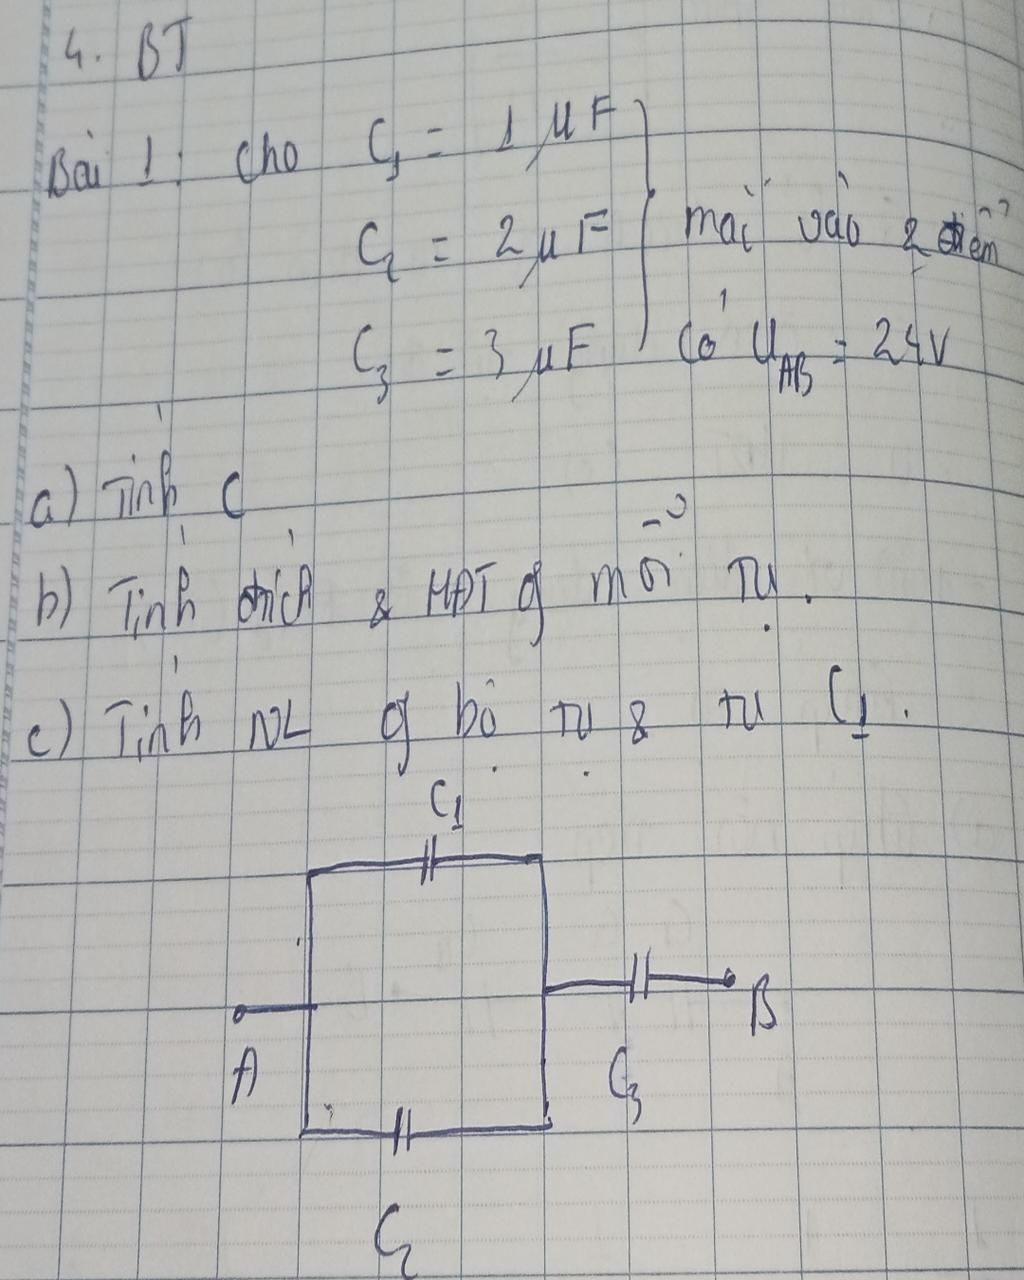 4. BT
Bài 1: Cho C₁ = 1 μF
C₂ = 2 μF mắc vào 2 điểm
C₃ = 3 μF có U_AB = 24V
a) Tính C
b) Tính đtích & HĐT of mỗi Tụ.
c) Tính NL of bộ tụ & tụ C₁.
C₁
A
B
C₃
C₂